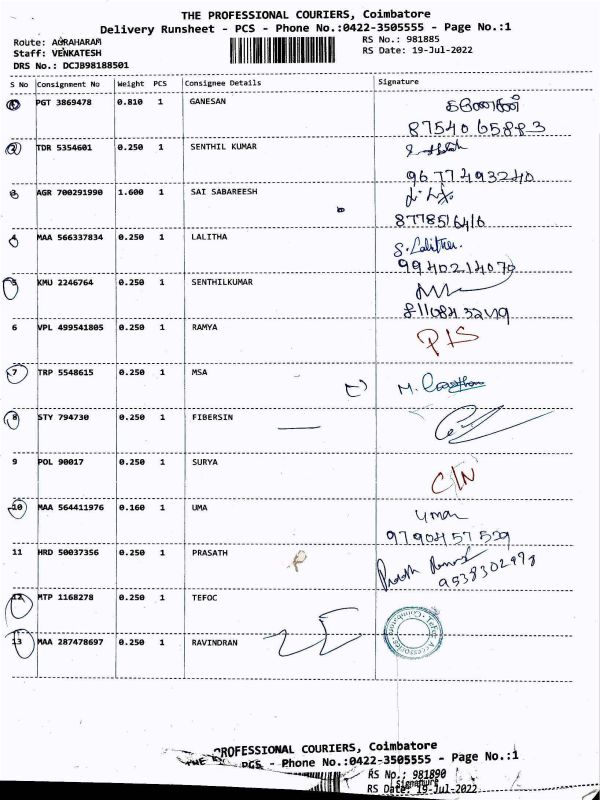 THE PROFESSIONAL COURIERS, Coimbatore
Delivery Runsheet - PCS - Phone No.:0422-3505555 - Page No.:1
Route: AGRAHARAM
RS No.: 981885
Staff: VENKATESH
RS Date: 19-Jul-2022
DRS No.: DCJB98188501
S No Consignment No Weight PCS Consignee Details Signature
1 PGT 3869478 0.810 1 GANESAN கணேசன்
8754065883
2 TDR 5354601 0.250 1 SENTHIL KUMAR
9677493240
3 AGR 700291990 1.600 1 SAI SABAREESH
8778516416
4 MAA 566337834 0.250 1 LALITHA S. Lalitha.
9940214070
5 KMU 2246764 0.250 1 SENTHILKUMAR
6 VPL 499541805 0.250 1 RAMYA P/S
7 TRP 5548615 0.250 1 MSA M.
8 STY 794730 0.250 1 FIBERSIN
9 POL 90017 0.250 1 SURYA C/N
10 MAA 564411976 0.160 1 UMA Uma
9790457529
11 HRD 50037356 0.250 1 PRASATH Prasath
9538302978
12 MTP 1168278 0.250 1 TEFOC
Tefoc Accessories Coimbatore
13 MAA 287478697 0.250 1 RAVINDRAN
PROFESSIONAL COURIERS, Coimbatore
PCS - Phone No.:0422-3505555 - Page No.:1
RS No.: 981890
Signature
RS Date: 19-Jul-2022